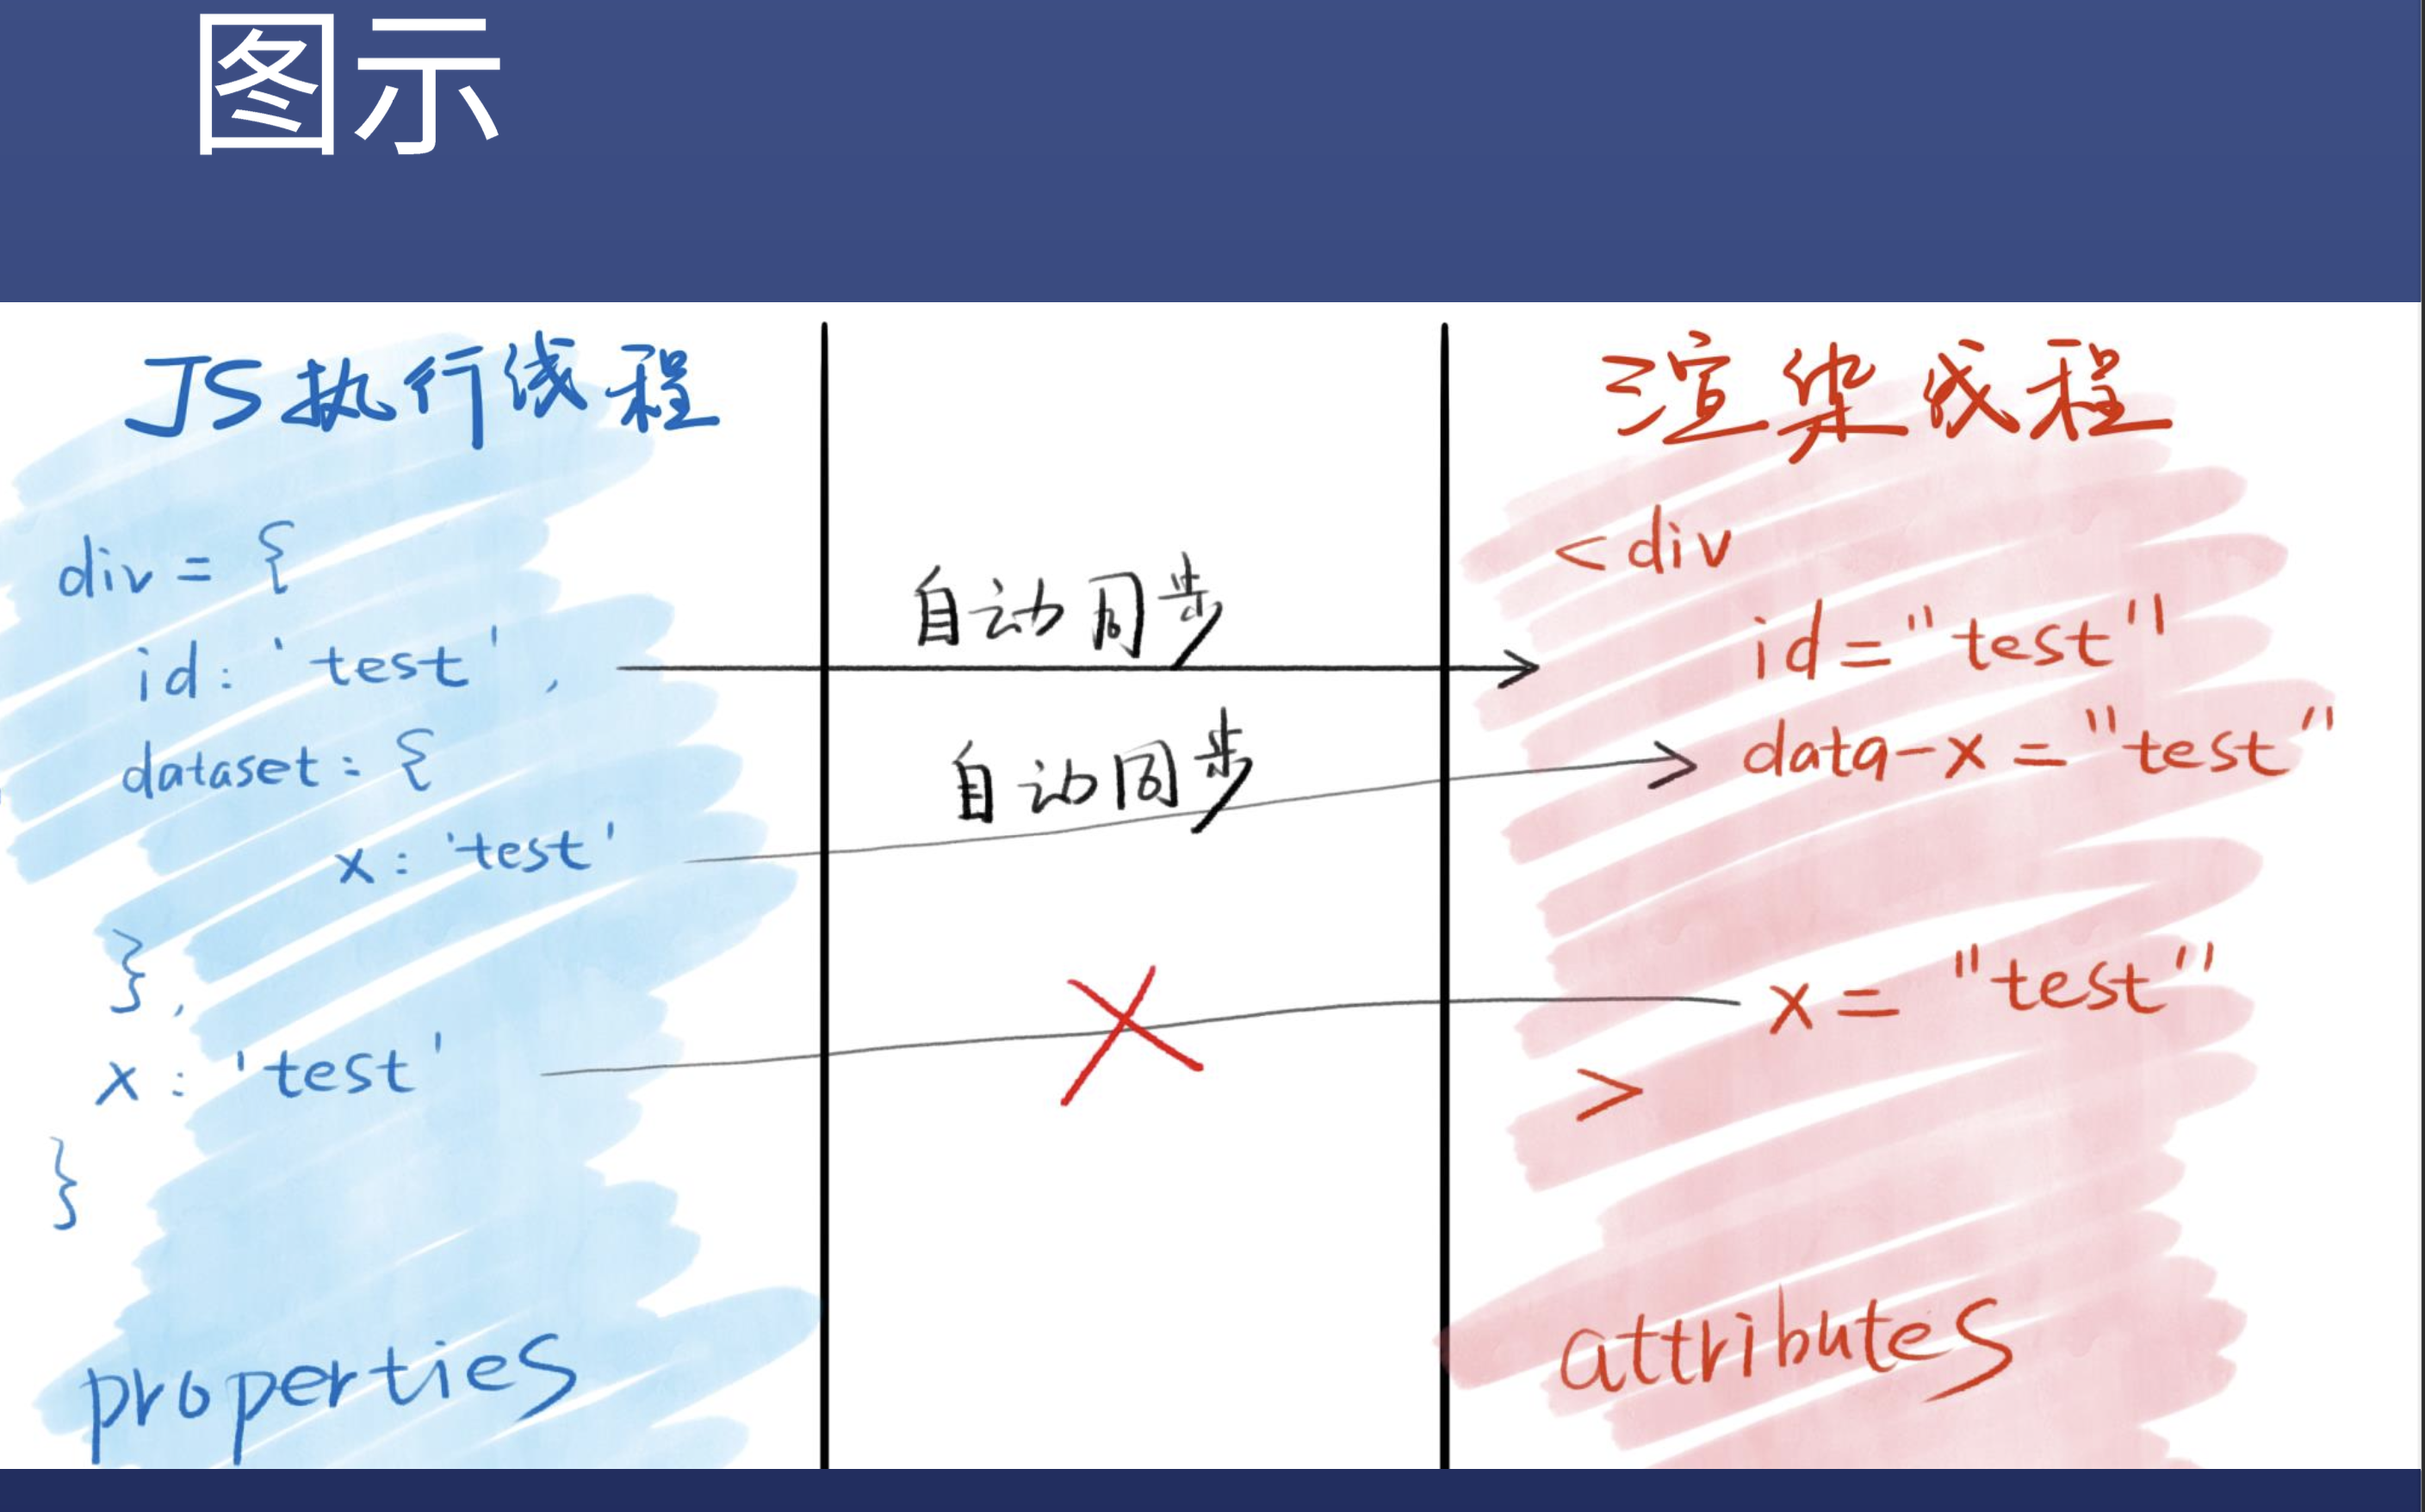 图示
JS执行线程
div = {
id: 'test',
dataset: {
x: 'test'
},
x: 'test'
}
properties
自动同步
自动同步
渲染线程
<div
id="test"
data-x="test"
x="test"
>
attributes